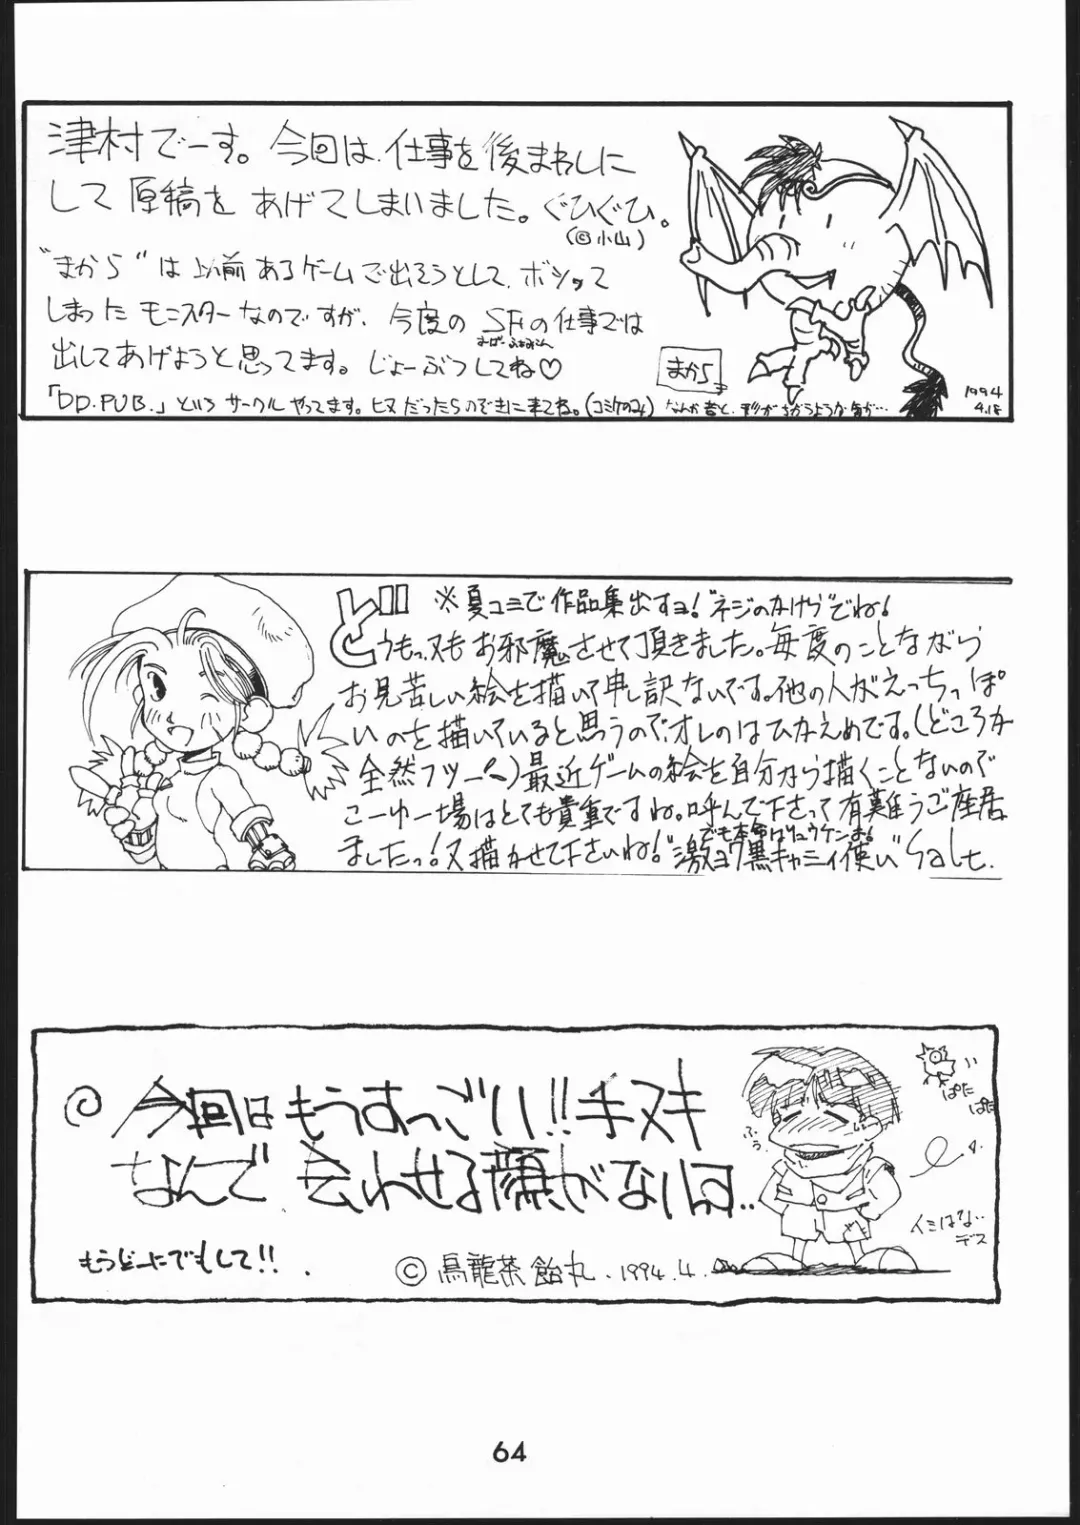 津村でーす。今回は、仕事を後まわしに
して原稿をあげてしまいました。ぐひぐひ。
(©小山)
"まから"は以前あるゲームで出そうとして、ボシャって
しまったモニスターなのですが、今度のSFCの仕事では
すーぱーふぁみこん
出してあげようと思ってます。じょーぶつしてね♡
「DD.PUB.」というサークルやってます。ヒマだったらのぞきに来てね。(コミケのみ)
なんか昔と、形がちがうような気が…
まから
1994
4.18
※夏コミで作品集出すヨ!"ネジのかけら"でね!
どうもっ、又もお邪魔させて頂きました。毎度のことながら
お見苦しい絵を描いて申し訳ないです。他の人がえっちっぽ
いのを描いていると思うので、オレのはひかえめです。(どころか
全然フツー)最近ゲームの絵を自分から描くことないので
こーゆー場はとても貴重ですね。呼んで下さって有難うご座居
ましたっ!又描かせて下さいね!"激ヨワ黒キャミィ使い"Salt.
でも本命はリュウケンよ!
今回はもうすっごい!!手ヌキ
なんで会わせる顔がないは..
もうどーにでもして!!
© 烏龍茶飴丸.1994.4.
ふぅ
ぱた
ぱた
イミはない..
デス
64